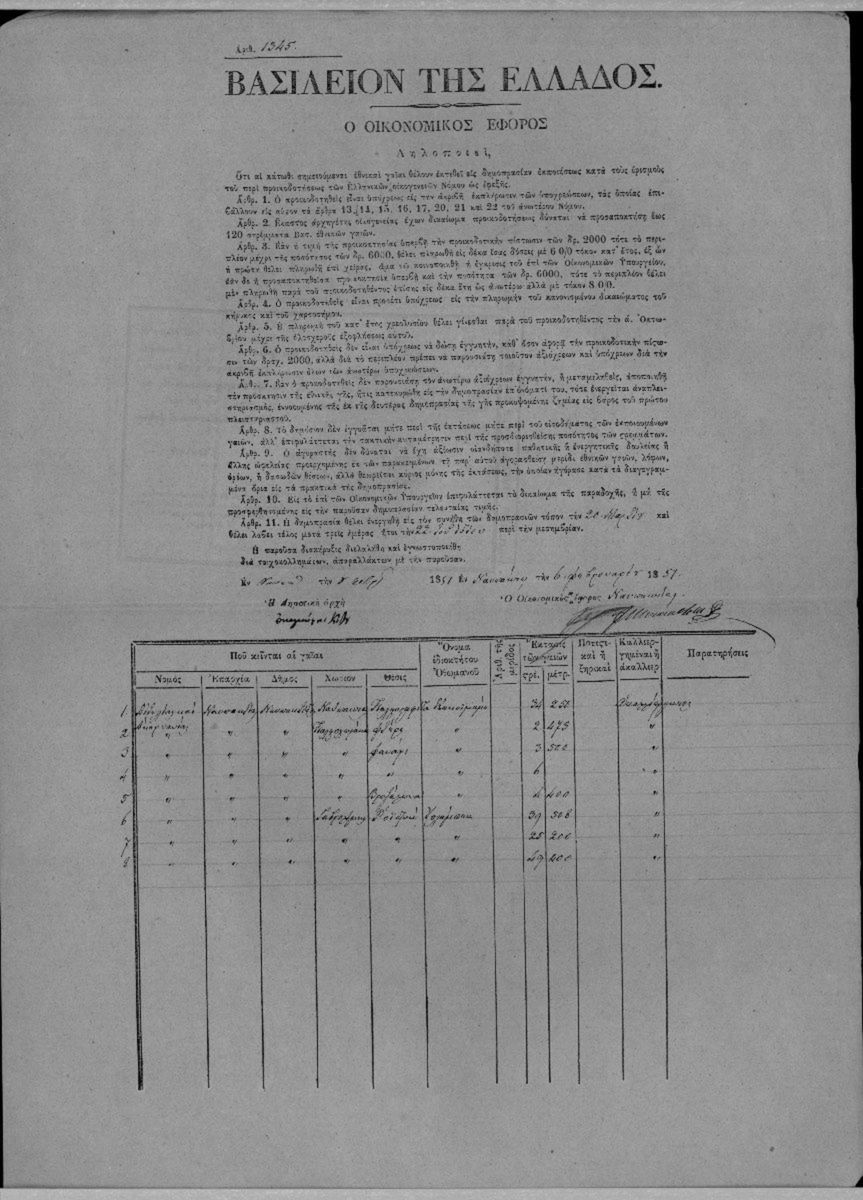 Ἀριθ. 1345.
ΒΑΣΙΛΕΙΟΝ ΤΗΣ ΕΛΛΑΔΟΣ.
Ο ΟΙΚΟΝΟΜΙΚΟΣ ΕΦΟΡΟΣ
Δηλοποιεῖ,
Ὅτι αἱ κάτωθι σημειούμεναι ἐθνικαὶ γαῖαι θέλουν ἐκτεθεῖ εἰς δημοπρασίαν ἐκποιήσεως κατὰ τοὺς ὁρισμοὺς
τοῦ περὶ προικοδοτήσεως τῶν Ἑλληνικῶν οἰκογενειῶν Νόμου ὡς ἑφεξῆς.
Ἄρθρ. 1. Ὁ προικοδοτηθεὶς εἶναι ὑπόχρεως εἰς τὴν ἀκριβῆ ἐκπλήρωσιν τῶν ὑποχρεώσεων, τὰς ὁποίας ἐπι-
βάλλουν εἰς αὐτὸν τὰ ἄρθρα 13, 14, 15, 16, 17, 20, 21 καὶ 22 τοῦ ἀνωτέρω Νόμου.
Ἄρθρ. 2. Ἕκαστος ἀρχηγέτης οἰκογενείας ἔχων δικαίωμα προικοδοτήσεως δύναται νὰ προσαποκτήσῃ ἕως
120 στρέμματα Βασ. ἐθνικῶν γαιῶν.
Ἄρθρ. 3. Ἐὰν ἡ τιμὴ τῆς προικοκτησίας ὑπερβῇ τὴν προικοδοτικὴν πίστωσιν τῶν δρ. 2000 τότε τὸ περι-
πλέον μέχρι τῆς ποσότητος τῶν δρ. 6000, θέλει πληρωθῆ εἰς δέκα ἴσας δόσεις μὲ 6 0/0 τόκον κατ᾽ ἔτος, ἐξ ὧν
ἡ πρώτη θέλει πληρωθῆ ἐπὶ χεῖρας, ἅμα οὗ κοινοποιηθῇ ἡ ἔγκρισις τοῦ ἐπὶ τῶν Οἰκονομικῶν Ὑπουργείου,
ἐὰν δὲ ἡ προσαποκτηθεῖσα προικοκτησία ὑπερβῇ καὶ τὴν ποσότητα τῶν δρ. 6000, τότε τὸ περιπλέον θέλει
μὲν πληρωθῆ παρὰ τοῦ προικοδοτηθέντος ἐπίσης εἰς δέκα ἔτη ὡς ἀνωτέρω ἀλλὰ μὲ τόκον 8 0/0.
Ἄρθρ. 4. Ὁ προικοδοτηθεὶς εἶναι προσέτι ὑπόχρεως εἰς τὴν πληρωμὴν τοῦ κανονισμένου δικαιώματος τοῦ
κήρυκος καὶ τοῦ χαρτοσήμου.
Ἄρθρ. 5. Ἡ πληρωμὴ τοῦ κατ᾽ ἔτος χρεολυσίου θέλει γίνεσθαι παρὰ τοῦ προικοδοτηθέντος τὴν ά. Ὀκτω-
βρίου μέχρι τῆς ὁλοσχεροῦς ἐξοφλήσεως αὐτοῦ.
Ἄρθρ. 6. Ὁ προικοδοτηθεὶς δὲν εἶναι ὑπόχρεως νὰ δώσῃ ἐγγυητὴν, καθ᾽ ὅσον ἀφορᾷ τὴν προικοδοτικὴν πίστω-
σιν τῶν δραχ. 2000, ἀλλὰ διὰ τὸ περιπλέον πρέπει νὰ παρουσιάσῃ τοιοῦτον ἀξιόχρεων καὶ ὑπόχρεων διὰ τὴν
ἀκριβῆ ἐκπλήρωσιν ὅλων τῶν ἀνωτέρω ὑποχρεώσεων.
Ἄρθ. 7. Ἐὰν ὁ προικοδοτηθεὶς δὲν παρουσιάσῃ τὸν ἀνωτέρω ἀξιόχρεων ἐγγυητὴν, ἢ μεταμεληθεὶς, ἀποποιηθῇ
τὴν πρόσκτησιν τῆς ἐθνικῆς γῆς, ἥτις κατεκυρώθη εἰς τὴν δημοπρασίαν ἐπ᾽ ὀνόματί του, τότε ἐνεργεῖται ἀναπλει-
στηριασμὸς, ἐννοουμένης τῆς ἐκ τῆς δευτέρας δημοπρασίας τῆς γῆς προκυψομένης ζημίας εἰς βάρος τοῦ πρώτου
πλειστηριαστοῦ.
Ἄρθρ. 8. Τὸ δημόσιον δὲν ἐγγυᾶται μήτε περὶ τῆς ἐκτάσεως μήτε περὶ τοῦ εἰσοδήματος τῶν ἐκποιουμένων
γαιῶν, ἀλλ᾽ ἐπιφυλάττεται τὴν τακτικὴν καταμέτρησιν περὶ τῆς προσδιορισθείσης ποσότητος τῶν στρεμμάτων.
Ἄρθρ. 9. Ὁ ἀγοραστὴς δὲν δύναται νὰ ἔχῃ ἀξίωσιν οἱανδήποτε παθητικῆς ἢ ἐνεργητικῆς δουλείας ἢ
ἄλλης ὠφελείας προερχομένης ἐκ τῶν παρακειμένων τῇ παρ᾽ αὐτοῦ ἀγορασθείσῃ μερίδι ἐθνικῶν γαιῶν, λόφων,
ὀρέων, ἢ δασωδῶν θέσεων, ἀλλὰ θεωρεῖται κύριος μόνης τῆς ἐκτάσεως, τὴν ὁποίαν ἠγόρασε κατὰ τὰ διαγεγραμ-
μένα ὅρια εἰς τὰ πρακτικὰ τῆς δημοπρασίας.
Ἄρθρ. 10. Εἰς τὸ ἐπὶ τῶν Οἰκονομικῶν Ὑπουργεῖον ἐπιφυλάττεται τὸ δικαίωμα τῆς παραδοχῆς, ἢ μὴ τῆς
προσφερθησομένης εἰς τὴν παροῦσαν δημοπρασίαν τελευταίας τιμῆς.
Ἄρθρ. 11. Ἡ δημοπρασία θέλει ἐνεργηθῆ εἰς τὸν συνήθη τῶν δημοπρασιῶν τόπον τὴν 20 Μαρτίου καὶ
θέλει λάβει τέλος μετὰ τρεῖς ἡμέρας ἤτοι τὴν 22 τοῦ ἰδίου περὶ τὴν μεσημβρίαν.
Ἡ παροῦσα διακήρυξις διελαλήθη καὶ ἐγνωστοποιήθη
διὰ τοιχοκολλημάτων, ἀπαραλλάκτων μὲ τὴν παροῦσαν.
Ἐν τὴν 1851 Ἐν Ναυπάκτῳ τὴν 6 Φεβρουαρίου 1851.
Ἡ Δημοτικὴ ἀρχὴ Ὁ Οἰκονομικὸς Ἔφορος Ναυπακτίας
Ποῦ κεῖνται αἱ γαῖαι Ὄνομα ἰδιοκτήτου Ὀθωμανοῦ Ἀριθ. τῆς μερίδος Ἔκτασις τῶν γαιῶν Ποτιστικαὶ ἢ ξηρικαὶ Καλλιεργημέναι ἢ ἀκαλλιερ Παρατηρήσεις
Νομὸς Ἐπαρχία Δῆμος Χωρίον Θέσις στρέ. μέτρ.
1 Ναυπακτίας 34 251
2 Ἀκαρνανίας " " " 2 475
3 " " " " 3 500 "
4 " " " " " " 6 "
5 " " " " " 4 400 "
6 " " " 39 506 "
7 " " " " " " 25 200 "
8 " " " " " " 49 200 "